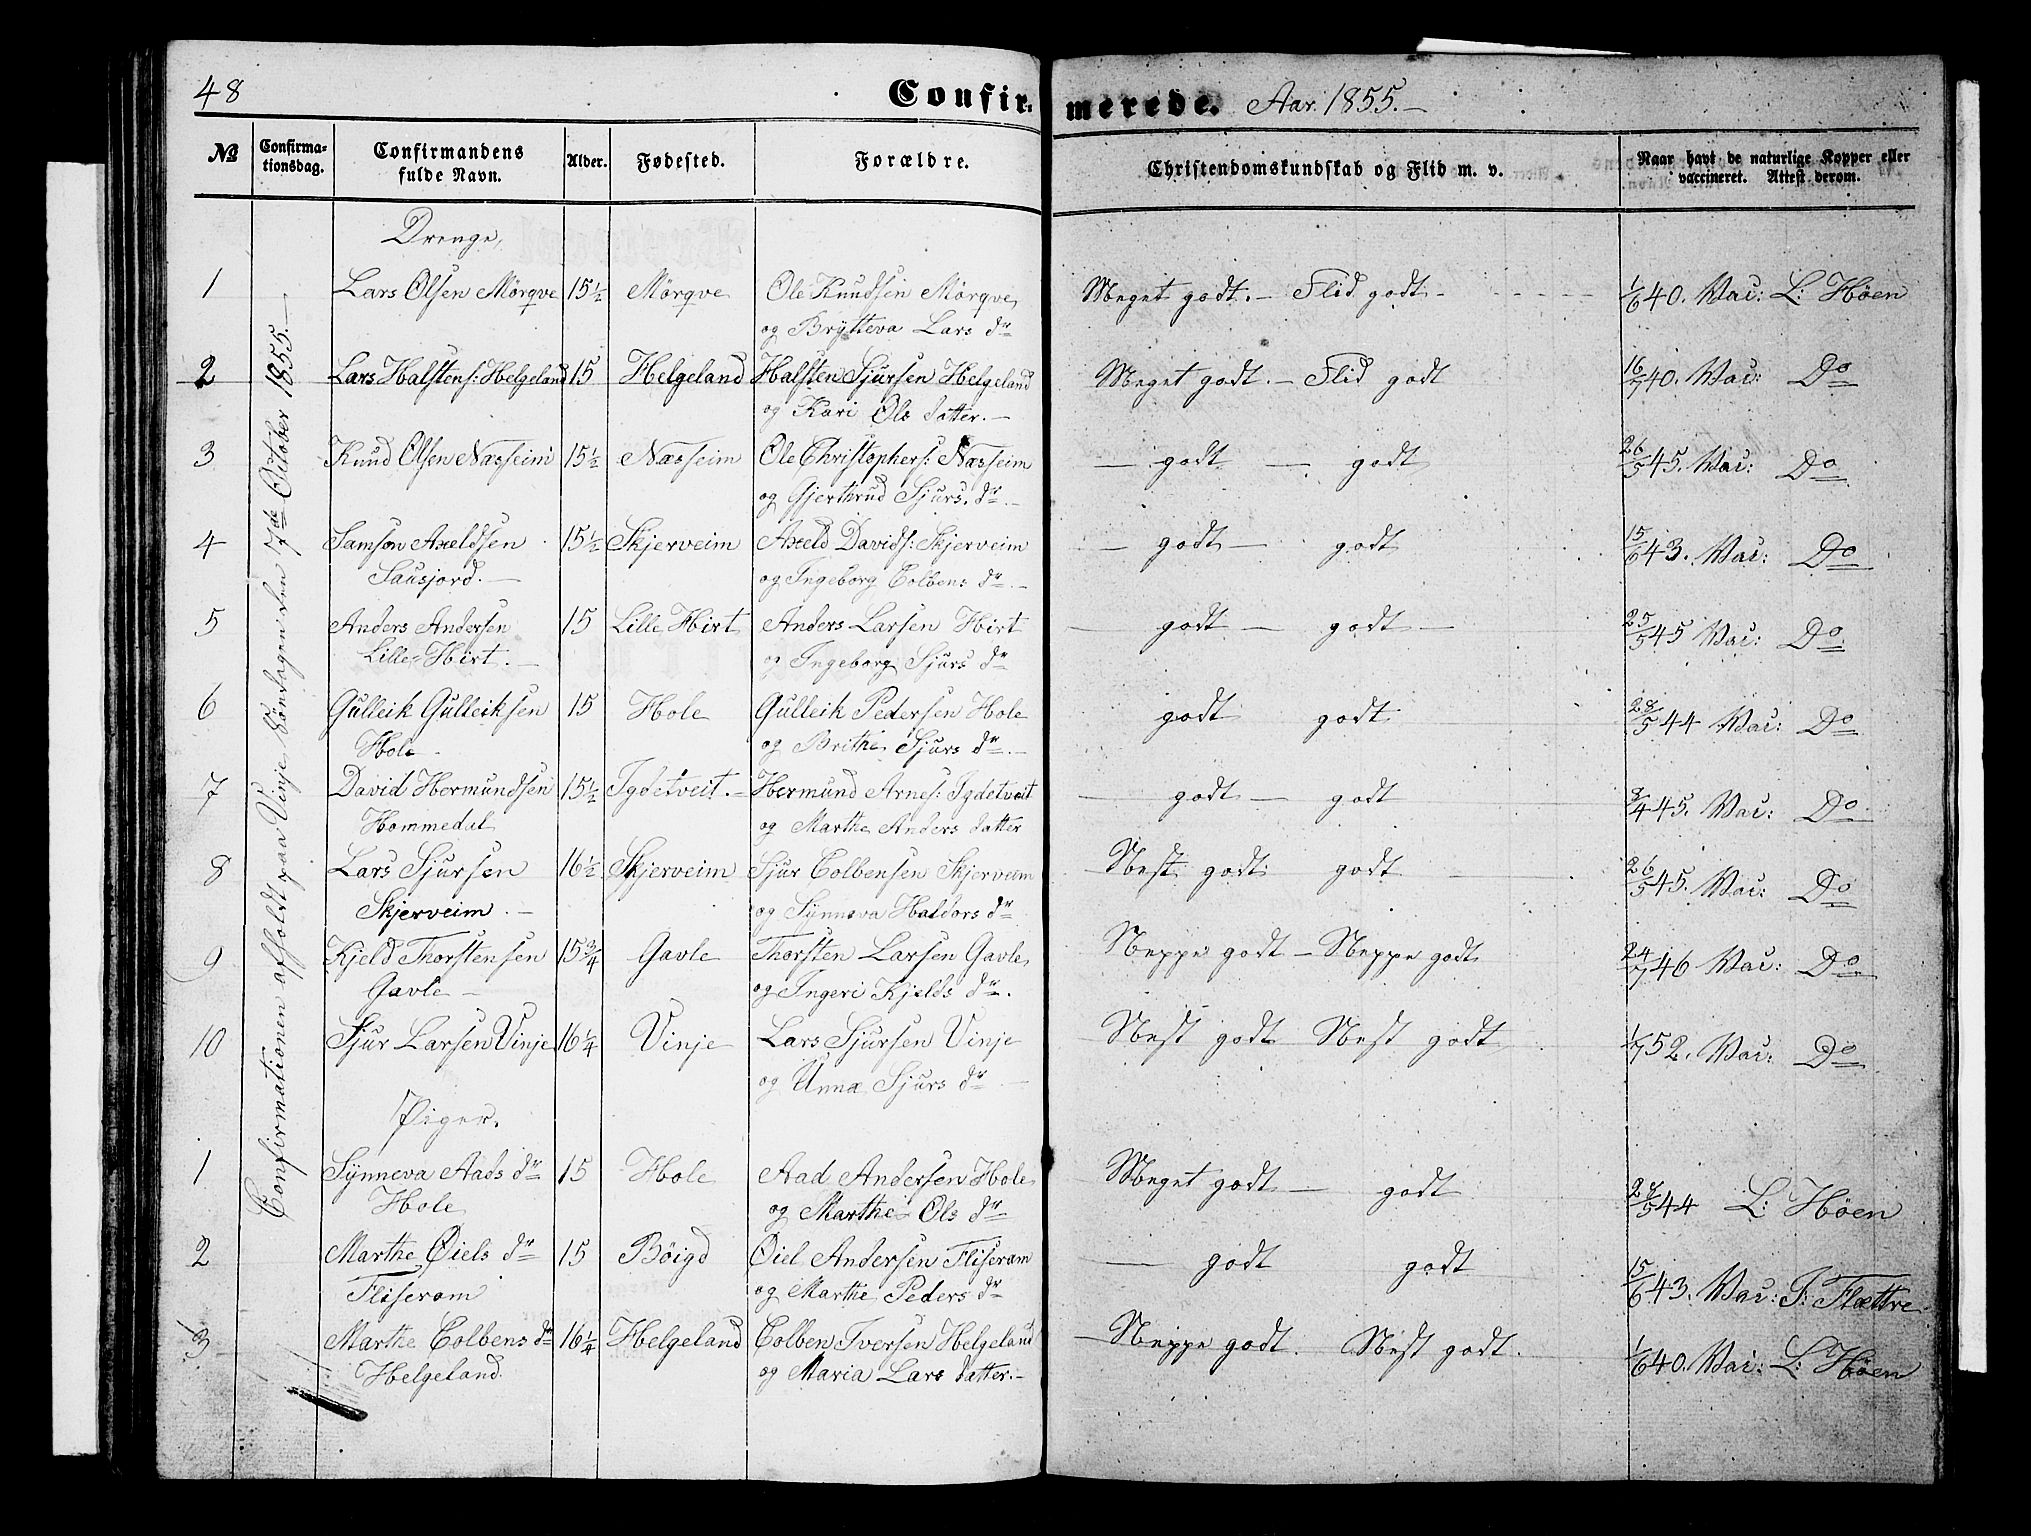 48
Confirmerede. Aar 1855.-
No Confirmationsdag. Confirmandens fulde Navn. Alder. Fødested. Forældre. Christendomskundskab og Flid m. v. Naar havt de naturlige Kopper eller vaccineret. Attest derom.
Confirmationen afholdt paa Vinje Søndagen den 7de October 1855.-
Drenge,
1 Lars Olsen Mörqve 15½ Mörqve Ole Knudsen Mörqve Meget godt. - Flid godt - 1/6 40. Vac: L: Höen
og Brÿtteva Lars dr
2 Lars Halstens: Helgeland 15 Helgeland Halsten Sjursen Helgeland Meget godt. - Flid godt 16/7 40. Vac: Do
og Kari Ols datter. -
3 Knud Olsen Næsseim 15½ Næsseim Ole Christophers: Næsseim - godt - godt 26/5 45. Vac: Do
og Gjertrud Sjurs. dr -
4 Samson Axeldsen 15½ Skjerveim Axeld Davids: Skjerveim - godt - godt 15/6 43. Vac: Do
Sausjord. - og Ingeborg Colbens dr -
5 Anders Andersen 15 Lille Hirt Anders Larsen Hirt - godt - godt - 25/5 45 Vac: Do
Lille Hirt. - og Ingeborg Sjurs dr
6 Gulleik Gulleiksen 15 Hole Gulleik Pedersen Hole godt godt 28/5 44 Vac: Do
Hole - og Brithe Sjurs dr -
7 David Hermundsen 15½ Tgdetveit. - Hermund Arnes: Tgdetveit - godt - godt 3/4 45. Vac: Do
Hommedal og Marthe Anders datter
8 Lars Sjursen 16½ Skjerveim Sjur Colbensen Skjerveim Nest godt godt 26/5 45. Vac: Do
Skjerveim. - og Sÿnneva Haldors dr
9 Kjeld Thorstensen 15¾ Gavle Thorsten Larsen Gavle Neppe godt - Neppe godt 24/7 46 Vac: Do
Gavle - og Ingeri Kjelds dr.
10 Sjur Larsen Vinje 16¼ Vinje Lars Sjursen Vinje Nest godt Nest godt 1/7 52. Vac: Do
og Unna Sjurs dr -
Piger.
1 Sÿnneva Aads dr 15 Hole Aad Andersen Hole Meget godt - godt 28/5 44 L: Höen
Hole og Marthe Ols dr
2 Marthe Øiels dr 15 Böigd Øiel Andersen Fliseram - godt godt 15/6 43. Vac: J: Flættre
Fliseram og Marthe Peders dr
3 Marthe Colbens dr 16¼ Helgeland Colben Iversen Helgeland - Neppe godt. Nest godt. 1/6 40. Vac: L: Höen
Helgeland. og Maria Lars datter. -